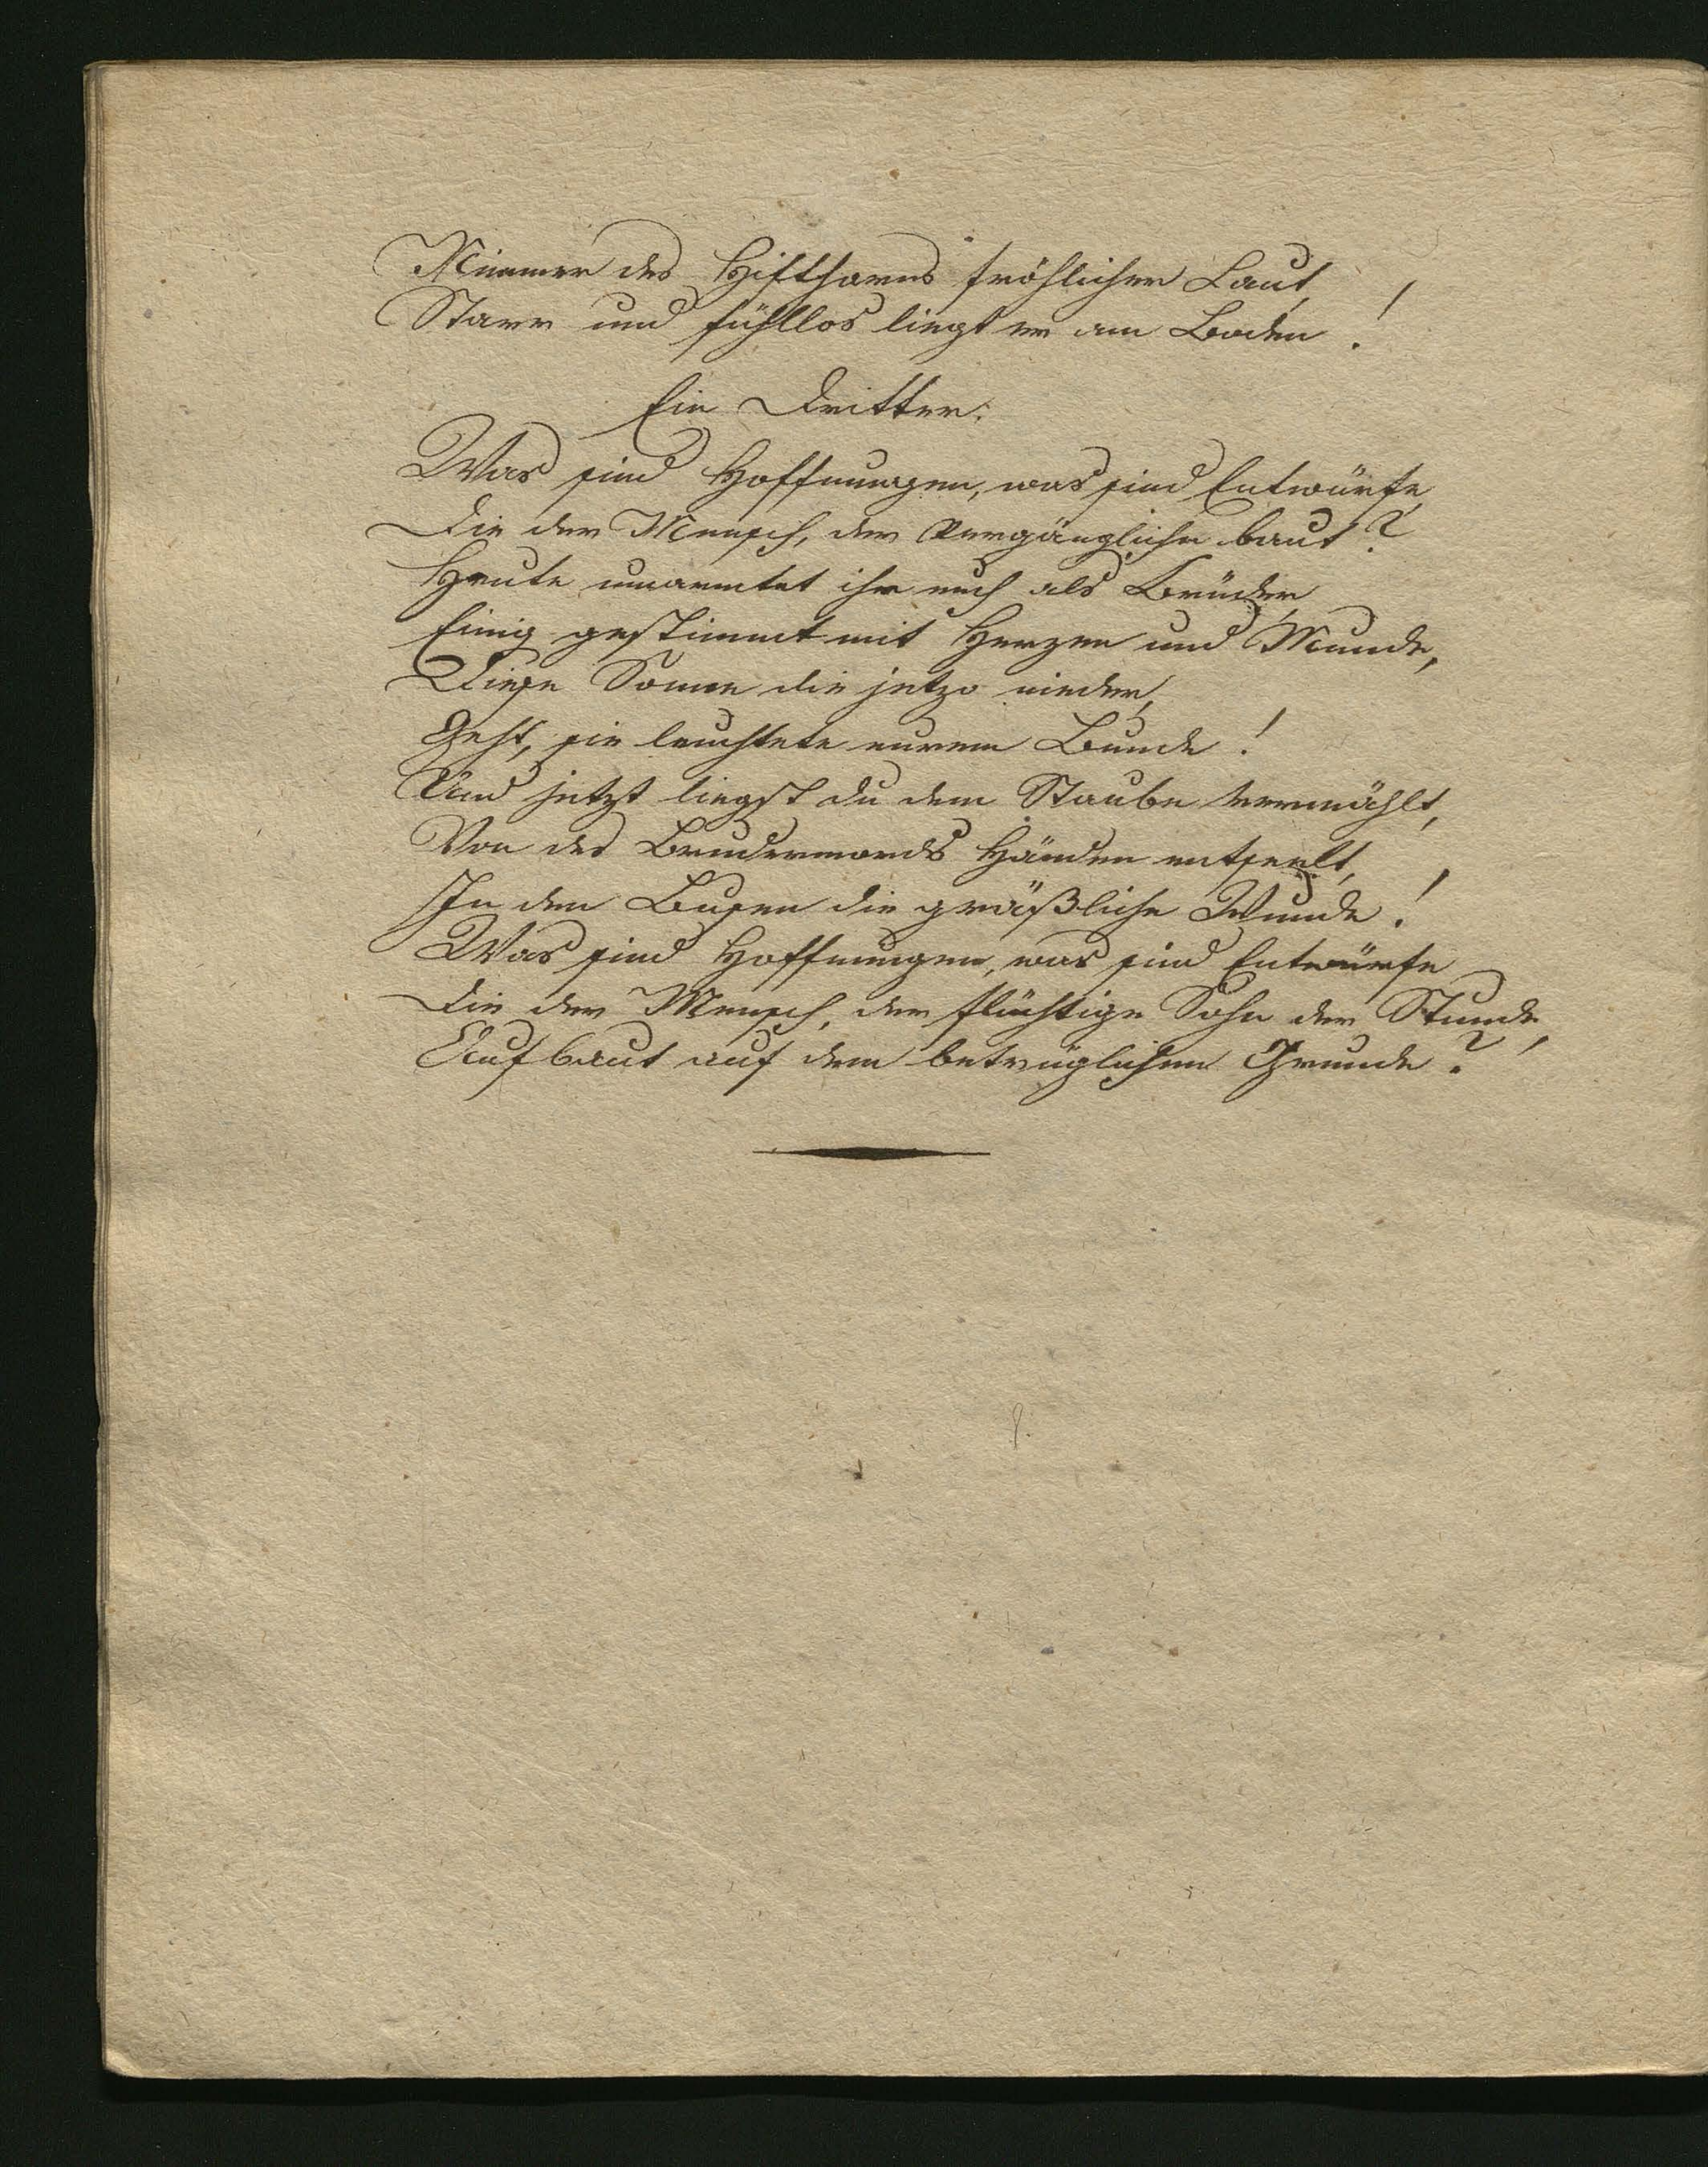 Nimmer des Hifthorns fröhlicher Laut,
Starr und fühllos liegt er am Boden!
Ein Dritter.
Was sind Hoffnungen, was sind Entwürfe,
Die der Mensch, der Vergängliche baut?
Heute umarmtet ihr euch als Brüder
Einig gestimmt mit Herzen und Munde,
Diese Sonne die jetzo nieder,
Geht, sie leuchtete eurem Bunde!
Und jetzt liegst du dem Staube vermählt,
Von des Brudermords Händen entseelt,
In dem Busen die gräßliche Wunde!
Was sind Hoffnungen, was sind Entwürfe
Die der Mensch, der flüchtige Sohn der Stunde,
Aufbaut auf dem betrüglichen Grunde?